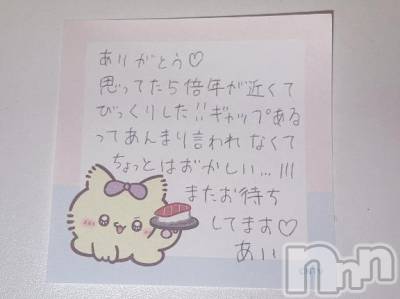 ありがとう♡
思ってた5倍年が近くて
びっくりした!!ギャップある
ってあんまり言われなくて
ちょっとはずかしい…///
またお待ち
してます♡
あい
nnn